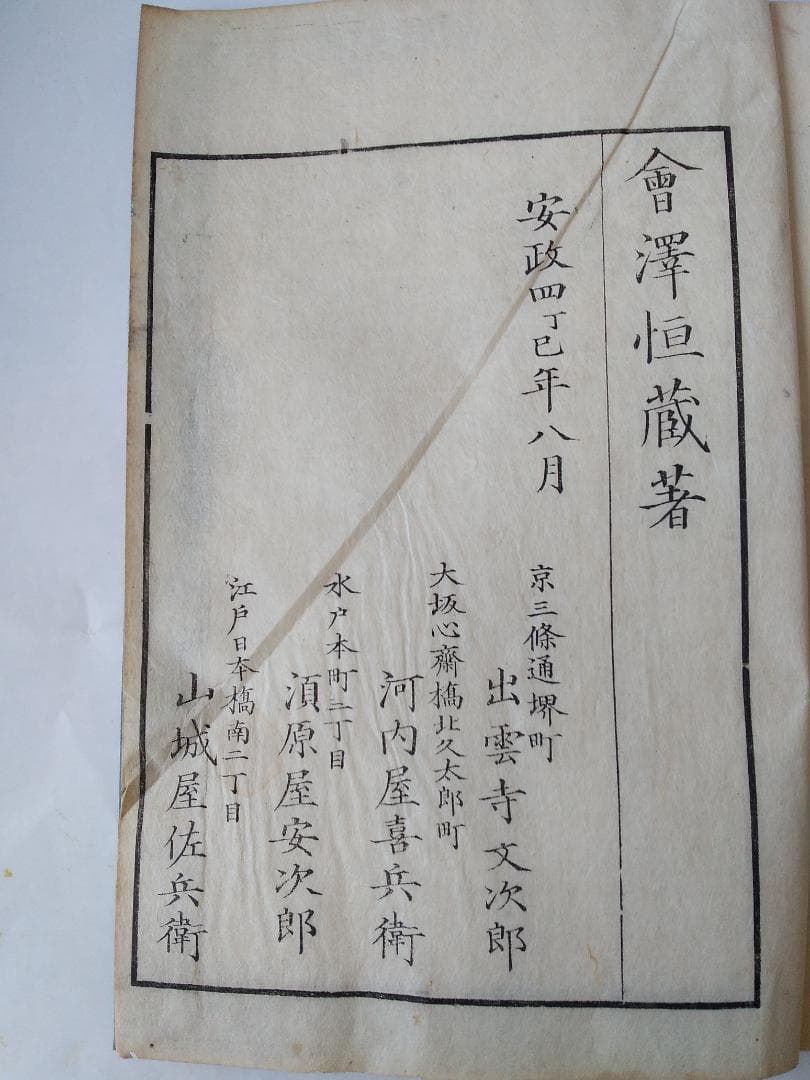 會澤恒蔵著
安政四丁巳年八月
京三條通堺町
出雲寺文次郎
大坂心齋橋北久太郎町
河内屋喜兵衛
水戸本町三丁目
須原屋安次郎
江戸日本橋南二丁目
山城屋佐兵衛